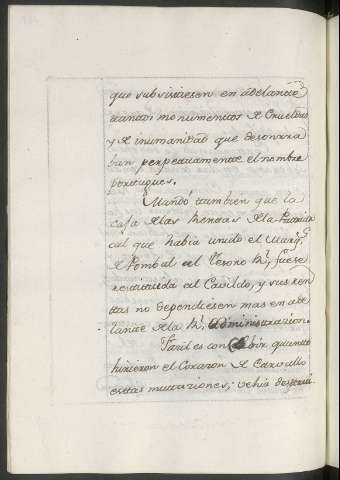 que subsistiesen en adelante
tantos monumentos de crueldad
y de inhumanidad que desonrra
ban perpetuamente el nombre
portugues.
Mandó tambien que la
casa de las Rentas de la Patriar
cal que habia unido el Marq.s
de Pombal al Tesoro Rl, fuese
restituida al Cavildo, y sus ren
tas no dependiesen mas en ade
lante de la Rl Administracion.
Facil es concebir quanto
hirieron el Corazon de Carvallo
estas mutaciones; vehia